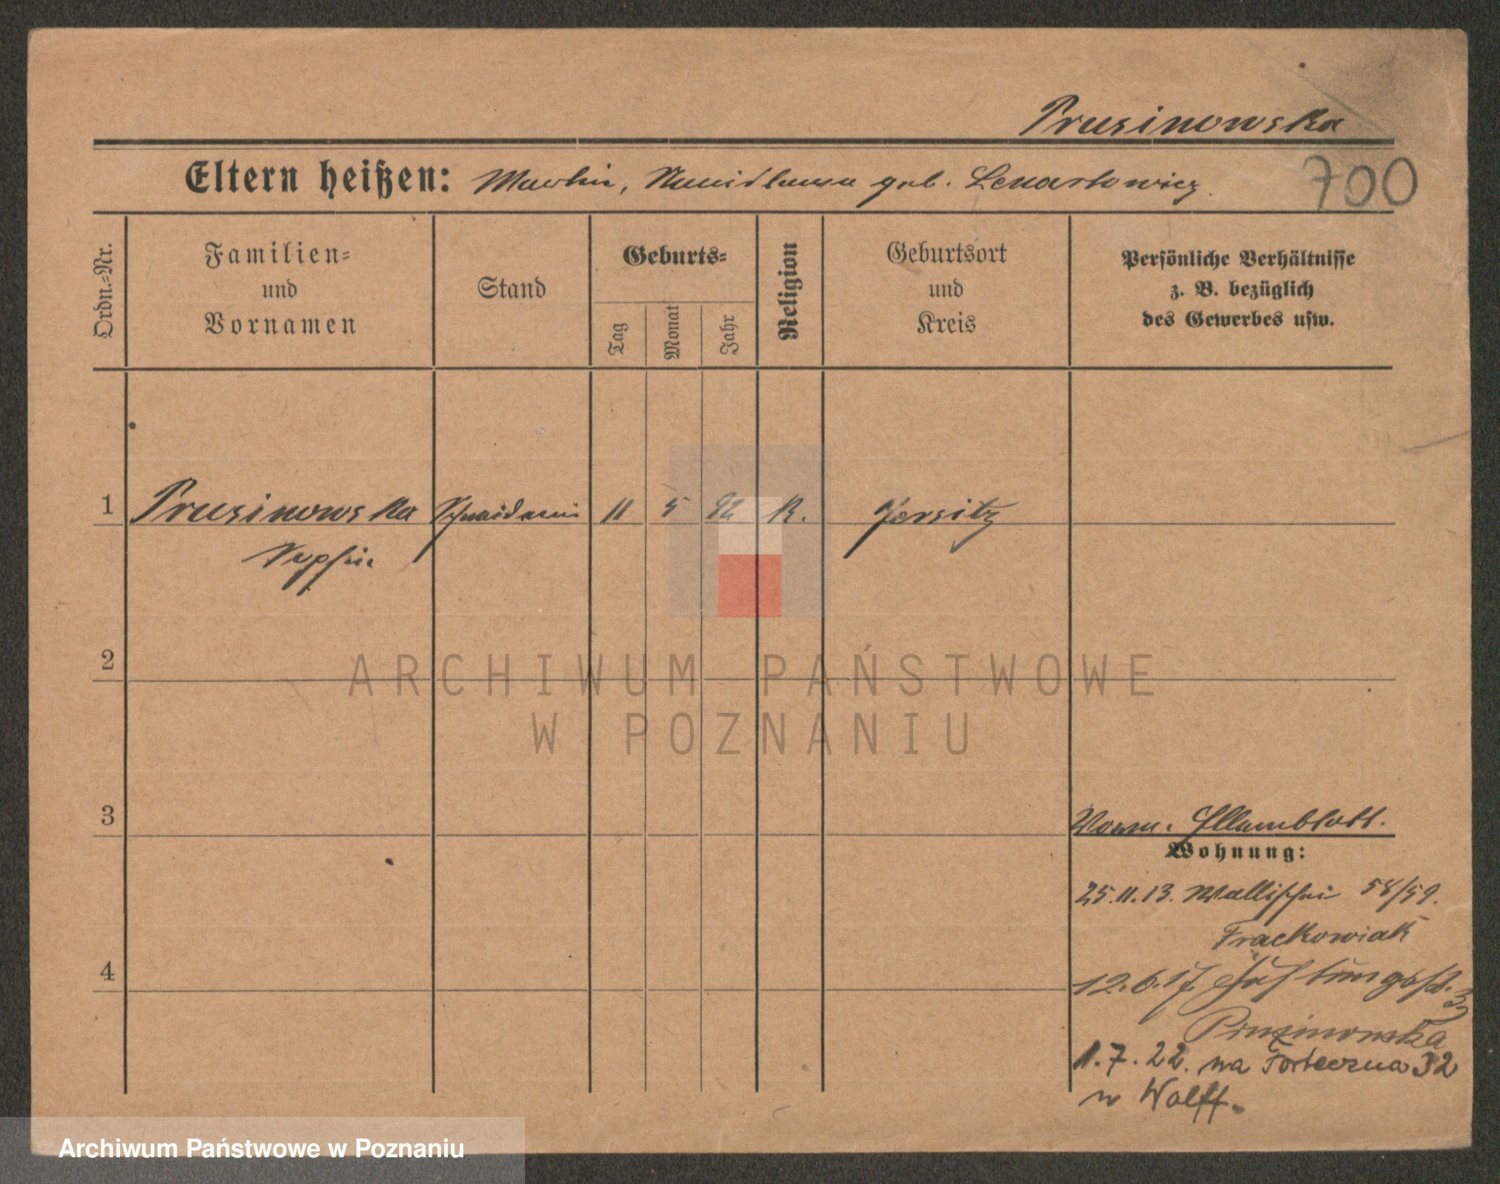 Prusinowska
Eltern heißen: Martin, geb. Lenartowicz
700
Ordn.=Nr.
Familien=
und
Vornamen
Stand
Geburts=
Tag
Monat
Jahr
Religion
Geburtsort
und
Kreis
Persönliche Verhältnisse
z. B. bezüglich
des Gewerbes usw.
1 Prusinowska Schneiderin 11 5 K. Jersitz
Sophie
2
ARCHIWUM PAŃSTWOWE
W POZNANIU
3
Wohnung:
25.11.13. Wallischei 58/59.
Frackowiak
4
12.6.17.
Prusinowska
1.7.22. na Forteczna 32
w Wolff.
Archiwum Państwowe w Poznaniu